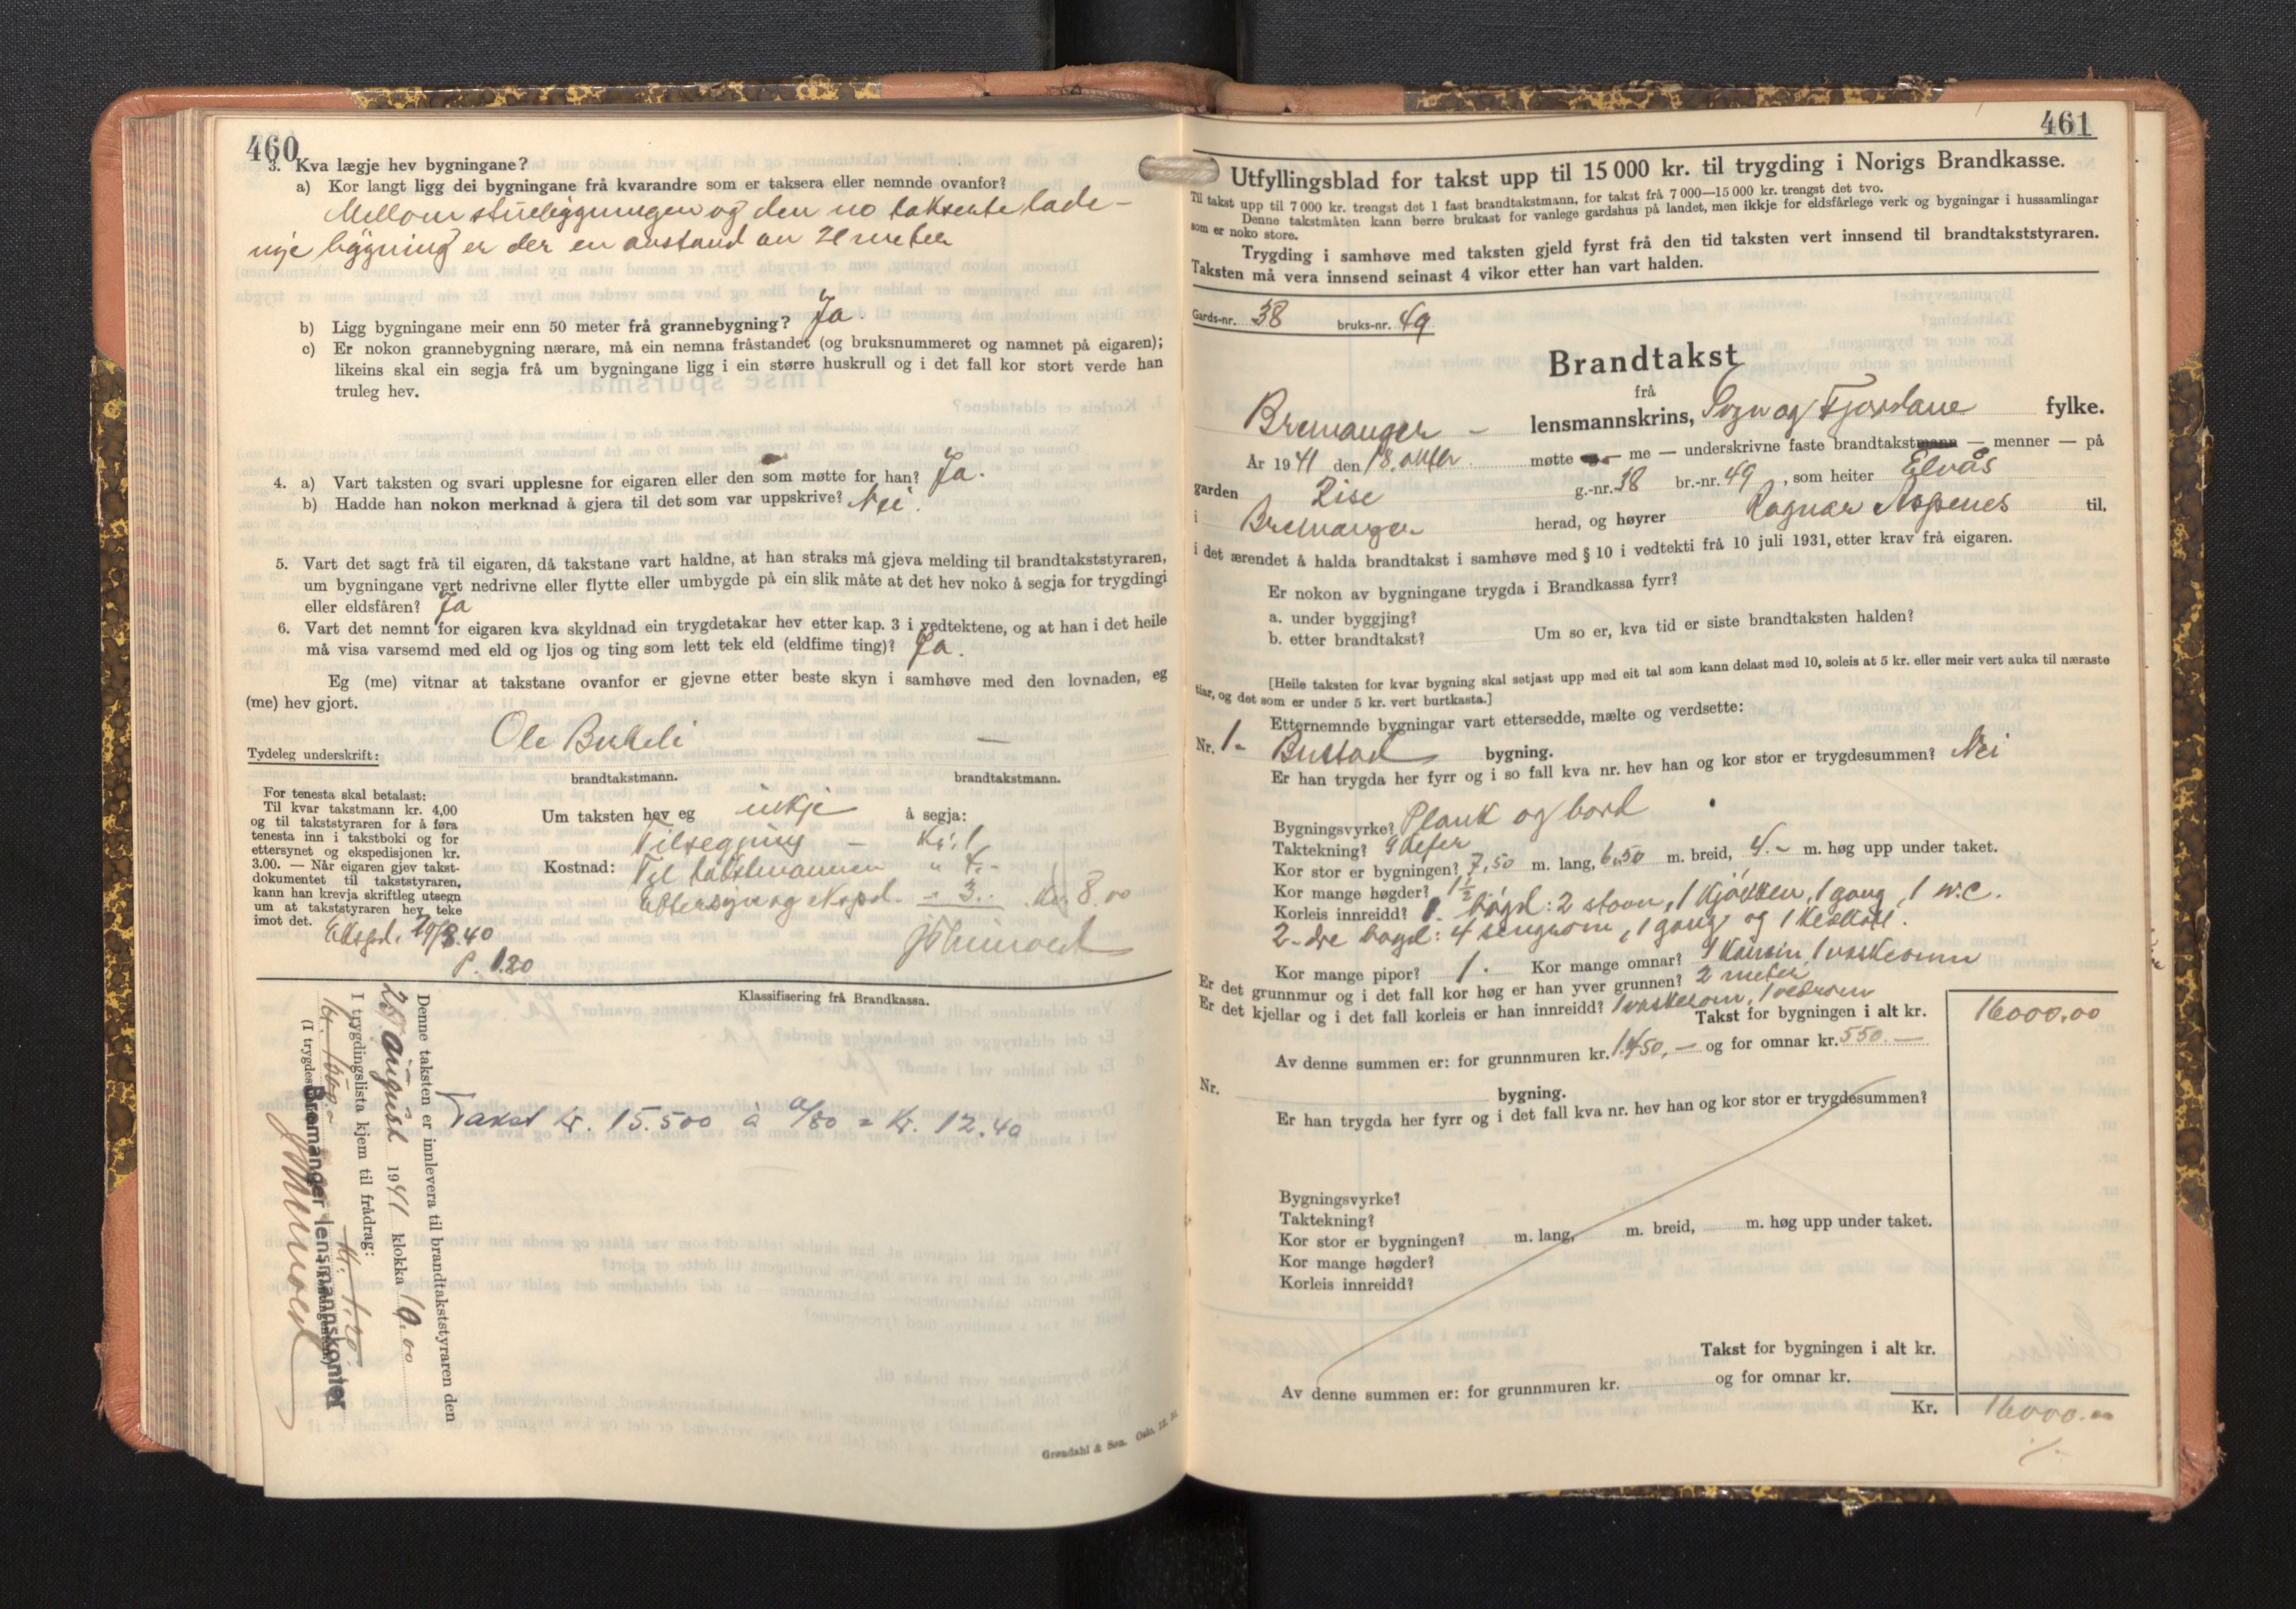 460
3. Kva lægje hev bygningane?
a) Kor langt ligg dei bygningane frå kvarandre som er taksera eller nemnde ovanfor?
Mellom stuebygningen og den no takserte lade-
nye bygning er der en avstand av 21 meter
b) Ligg bygningane meir enn 50 meter frå grannebygning? Ja.
c) Er nokon grannebygning nærare, må ein nemna fråstandet (og bruksnummeret og namnet på eigaren);
likeins skal ein segja frå um bygningane ligg i ein større huskrull og i det fall kor stort verde han
truleg hev.
4. a) Vart taksten og svari upplesne for eigaren eller den som møtte for han? Ja.
b) Hadde han nokon merknad å gjera til det som var uppskrive? Nei.
5. Vart det sagt frå til eigaren, då takstane vart haldne, at han straks må gjeva melding til brandtakststyraren,
um bygningane vert nedrivne eller flytte eller umbygde på ein slik måte at det hev noko å segja for trygdingi
eller eldsfåren? Ja
6. Vart det nemnt for eigaren kva skyldnad ein trygdetakar hev etter kap. 3 i vedtektene, og at han i det heile
må visa varsemd med eld og ljos og ting som lett tek eld (eldfime ting)? Ja.
Eg (me) vitnar at takstane ovanfor er gjevne etter beste skyn i samhøve med den lovnaden, eg
(me) hev gjort.
Tydeleg underskrift: Ole —
brandtakstmann. brandtakstmann.
For tenesta skal betalast:
Til kvar takstmann kr. 4,00
og til takststyraren for å føra
tenesta inn i takstboki og for
ettersynet og ekspedisjonen kr.
3.00. — Når eigaren gjev takst-
dokumentet til takststyraren,
kann han krevja skriftleg utsegn
um at takststyraren hev teke
imot det.
Um taksten hev eg inkje å segja:
Tilsegjing — Kr. 1
Kostnad: Til takstmannen " 4.-
Ettersyn og eksped. - 3.- Kr. 8.00
P. 1.20
Klassifisering frå Brandkassa.
Takst kr. 15.500 à 0/80 = Kr. 12.40
Denne taksten er innlevera til brandtakststyraren den
25 august 1941 klokka 10.00
I trygdingslista kjem til frådrag:
Bremanger lensmannskontor
Grøndahl & Søn. Oslo.
461
Utfyllingsblad for takst upp til 15 000 kr. til trygding i Norigs Brandkasse.
Til takst upp til 7 000 kr. trengst det 1 fast brandtakstmann, for takst frå 7 000—15 000 kr. trengst det tvo.
Denne takstmåten kann berre brukast for vanlege gardshus på landet, men ikkje for eldsfårlege verk og bygningar i hussamlingar
som er noko store.
Trygding i samhøve med taksten gjeld fyrst frå den tid taksten vert innsend til brandtakststyraren.
Taksten må vera innsend seinast 4 vikor etter han vart halden.
Gards-nr. 38 bruks-nr. 49
Brandtakst
frå
Bremanger — lensmannskrins, Sogn og Fjordane fylke.
År 1941 den 18. møtte — me — underskrivne faste brandtakstmann — menner — på
garden Rise g.-nr. 38 br.-nr. 49, som heiter Elvås
i Bremanger herad, og høyrer Ragnar Aspenes til,
i det ærendet å halda brandtakst i samhøve med § 10 i vedtekti frå 10 juli 1931, etter krav frå eigaren.
Er nokon av bygningane trygda i Brandkassa fyrr?
a. under byggjing?
b. etter brandtakst? Um so er, kva tid er siste brandtaksten halden?
[Heile taksten for kvar bygning skal setjast upp med eit tal som kann delast med 10, soleis at 5 kr. eller meir vert auka til næraste
tiar, og det som er under 5 kr. vert burtkasta.]
Etternemnde bygningar vart ettersedde, mælte og verdsette:
Nr. 1 - Bustad bygning.
Er han trygda her fyrr og i so fall kva nr. hev han og kor stor er trygdesummen? Nei
Bygningsvyrke? Plank og bord
Taktekning? Skifer
Kor stor er bygningen? 7,50 m. lang, 6,50 m. breid, 4.- m. høg upp under taket.
Kor mange høgder? 1 1/2
Korleis innreidd? 1. høgd: 2 stover, 1 kjøkken, 1 gang, 1 w.c.
2-dre høgd: 4 sengerom, 1 gang og 1
Kor mange pipor? 1. Kor mange omnar? 1 kamin, 1 vaskeomn
Er det grunnmur og i det fall kor høg er han yver grunnen? 2 meter
Er det kjellar og i det fall korleis er han innreidd? 1 vaskerom, 1 vedrom
Takst for bygningen i alt kr. 16000.00
Av denne summen er: for grunnmuren kr. 1.450,— og for omnar kr. 550.—
Nr. bygning.
Er han trygda her fyrr og i det fall kva nr. hev han og kor stor er trygdesummen?
Bygningsvyrke?
Taktekning?
Kor stor er bygningen? m. lang, m. breid, m. høg upp under taket.
Kor mange høgder?
Korleis innreidd?
Takst for bygningen i alt kr.
Av denne summen er: for grunnmuren kr. og for omnar kr.
Kr. 16000.-